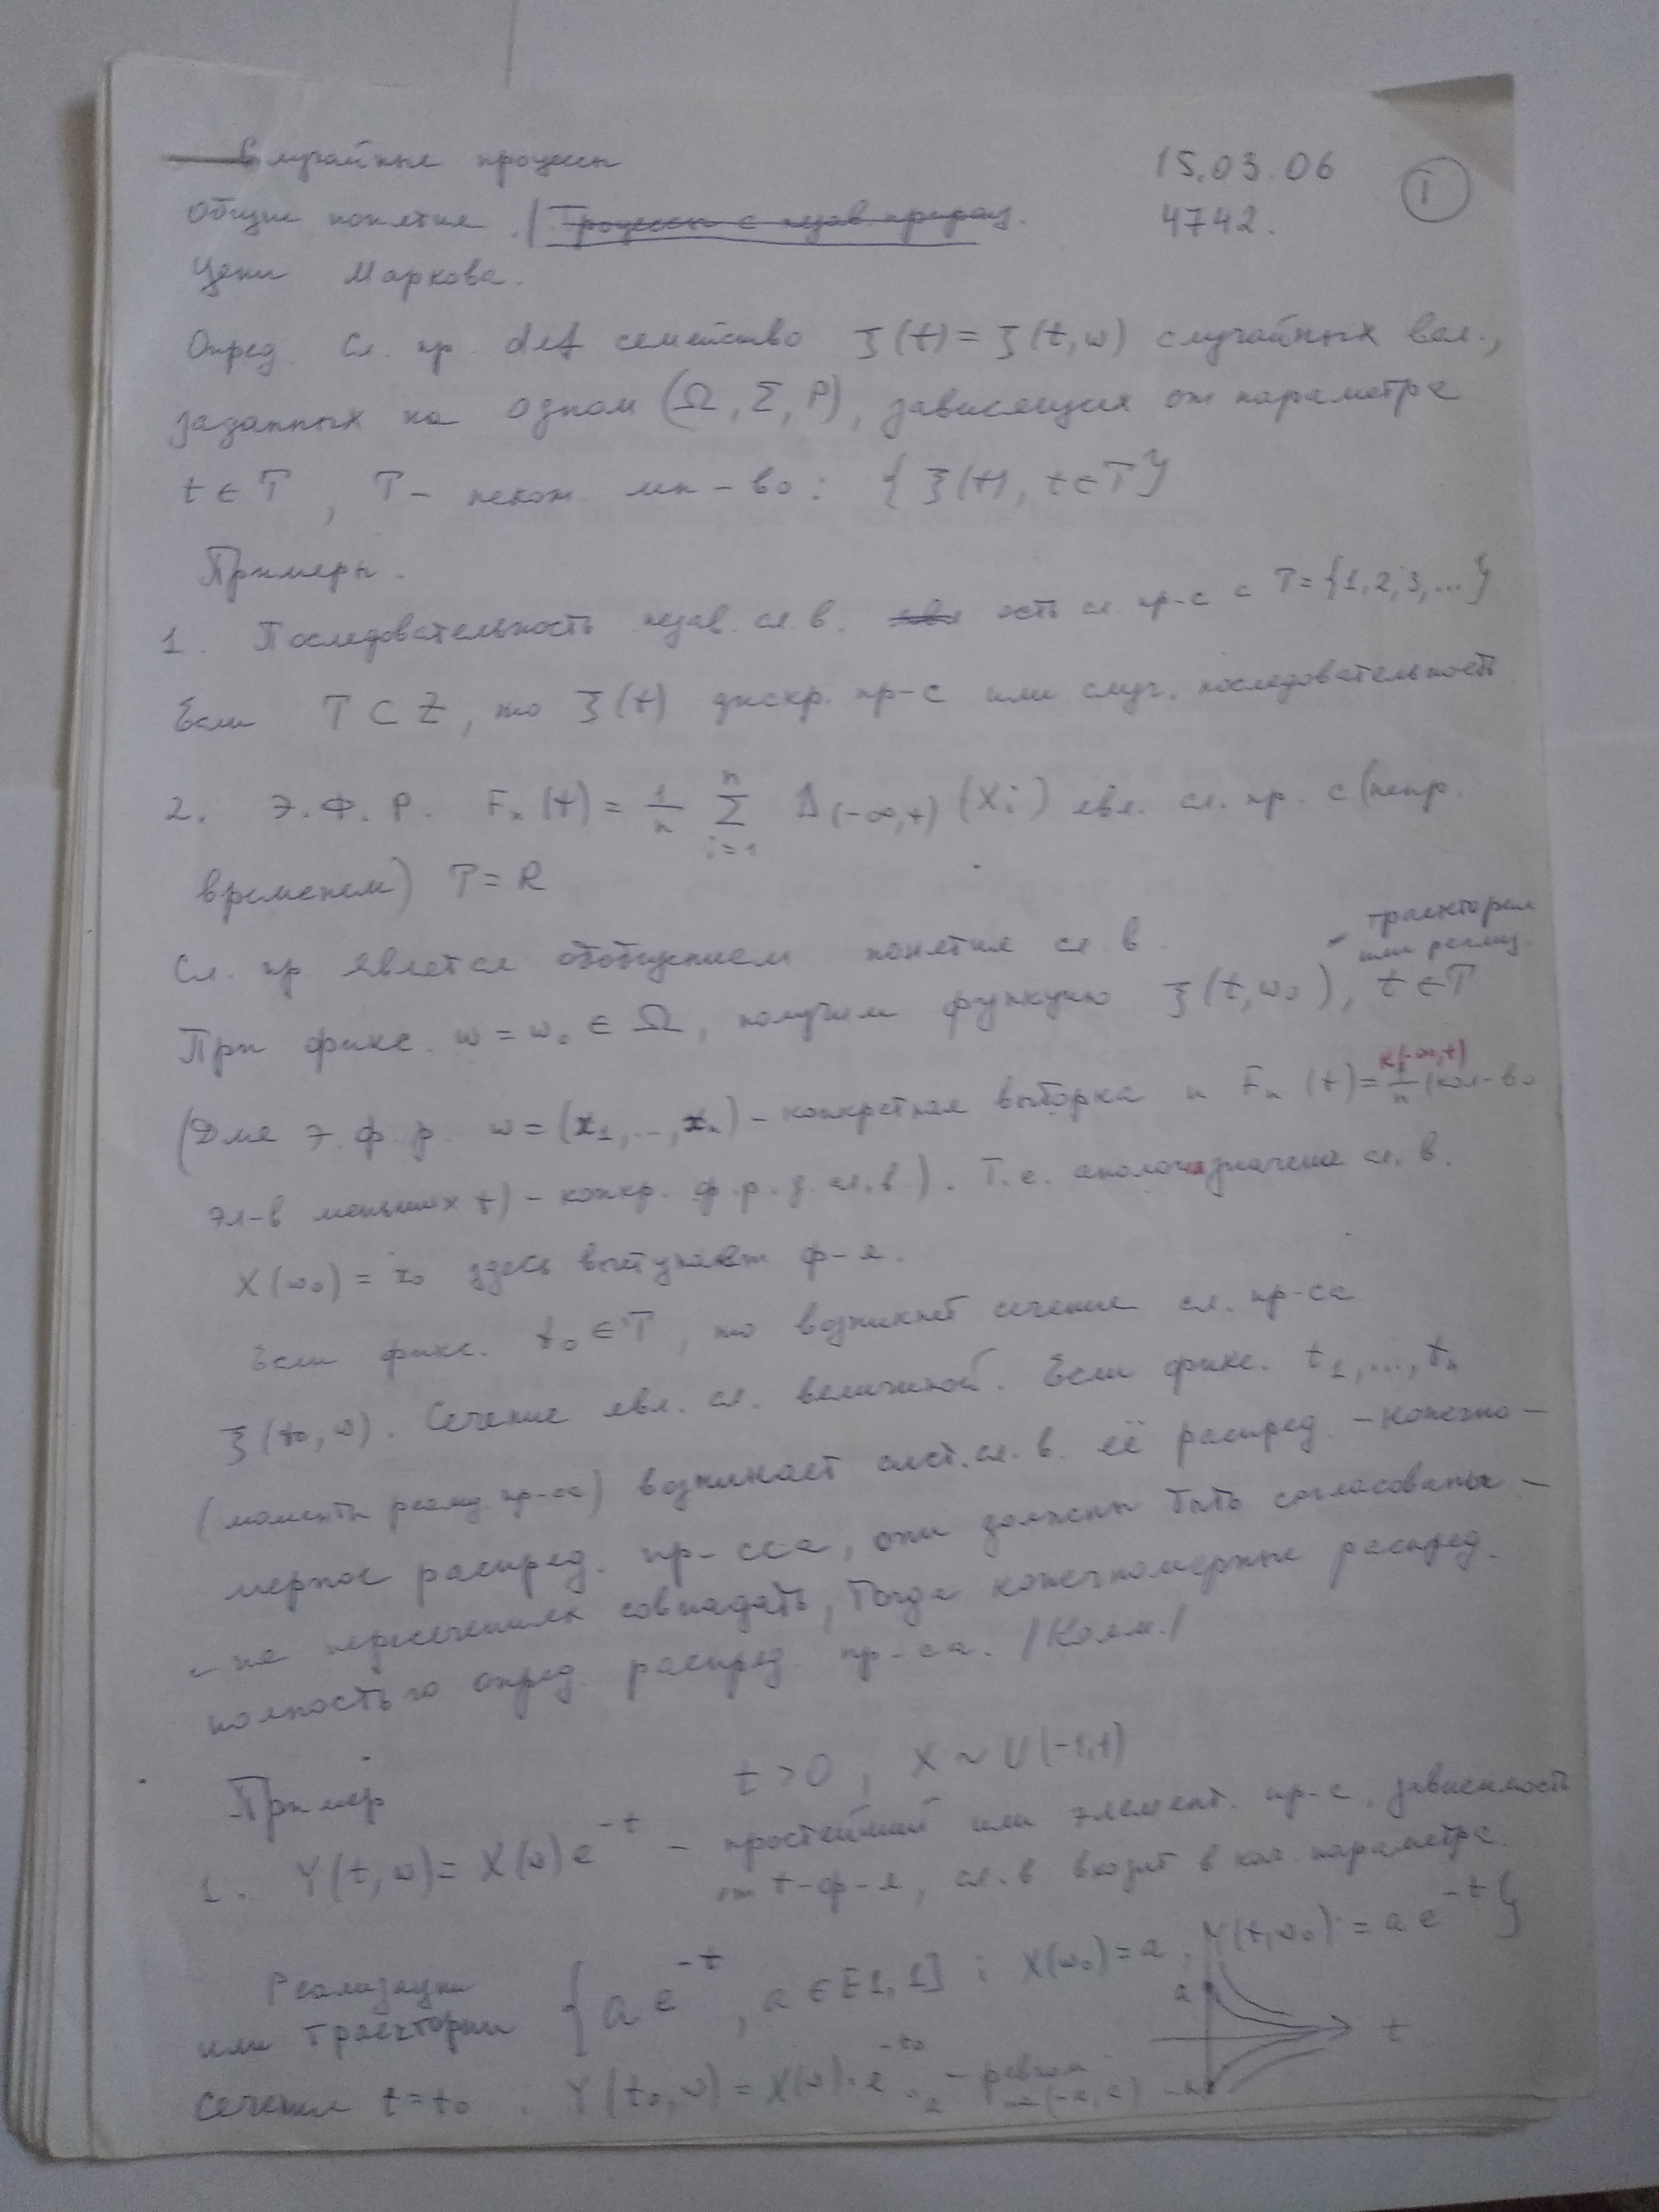 Случайные процессы 15.03.06 1
Общие понятия. | Процессы с незав. приращ. 4742.
Цепи Маркова.
Опред. Сл. пр. def семейство ξ(t) = ξ(t,ω) случайных вел.,
заданных на одном (Ω, Σ, P), зависящих от параметра
t ∈ T, T – некот. мн-во: {ξ(t), t∈T}
Примеры.
1. Последовательность незав. сл. в. есть сл. пр-с с T = {1,2,3,...}
Если T ⊂ Z, то ξ(t) дискр. пр-с или случ. последовательность
2. Э.Ф.Р. Fₙ(t) = 1/n Σ_{i=1}^{n} 1_{(-∞,t)}(Xi) явл. сл. пр. с (непр.
временем) T = R
Сл. пр. явлется обобщением понятия сл. в.
траектория
или реализ.
При фикс. ω = ω₀ ∈ Ω, получим функцию ξ(t,ω₀), t∈T
к(-∞,t)
(Для э.ф.р. ω = (x₁,...,xₙ) – конкретная выборка и Fₙ(t) = 1/n (кол-во
эл-в меньших t) – конкр. ф.р.д.сл.в.). Т.е. аналогия значения сл. в.
X(ω₀) = x₀ здесь выступает ф-я.
Если фикс. t₀ ∈ T, то возникнет сечение сл. пр-са
ξ(t₀,ω). Сечение явл. сл. величиной. Если фикс. t₁,...,tₙ
(моменты реализ. пр-са) возникает сист. сл. в. её распред. – конечно-
мерное распред. пр-сса, они должны быть согласованы –
– на пересечениях совпадать, Тогда конечномерные распред.
полностью опред. распред. пр-са. /Колм./
Пример t > 0, X ~ U(-1,1)
1. Y(t,ω) = X(ω)e^{-t} – простейший или элемент. пр-с, зависимость
от t-ф-я, сл. в входит в кач. параметра.
Реализации
или траектории {a e^{-t}, a ∈ [-1,1]; X(ω₀) = a. Y(t,ω₀) = a e^{-t}}
a
t
сечения t = t₀ : Y(t₀,ω) = X(ω)·e^{-t₀} – равном
на (-a,a)
a
-a